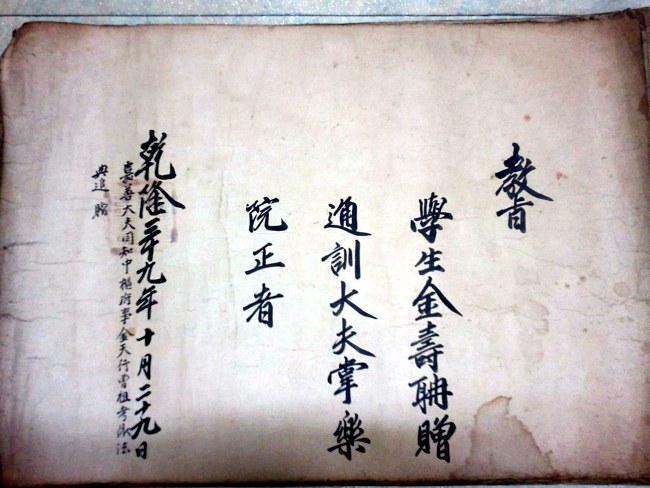 教旨
學生金壽聃贈
通訓大夫掌樂
院正者
乾隆三十九年十月二十九日
嘉善大夫同知中樞府事金天行曾祖考依法
典追贈